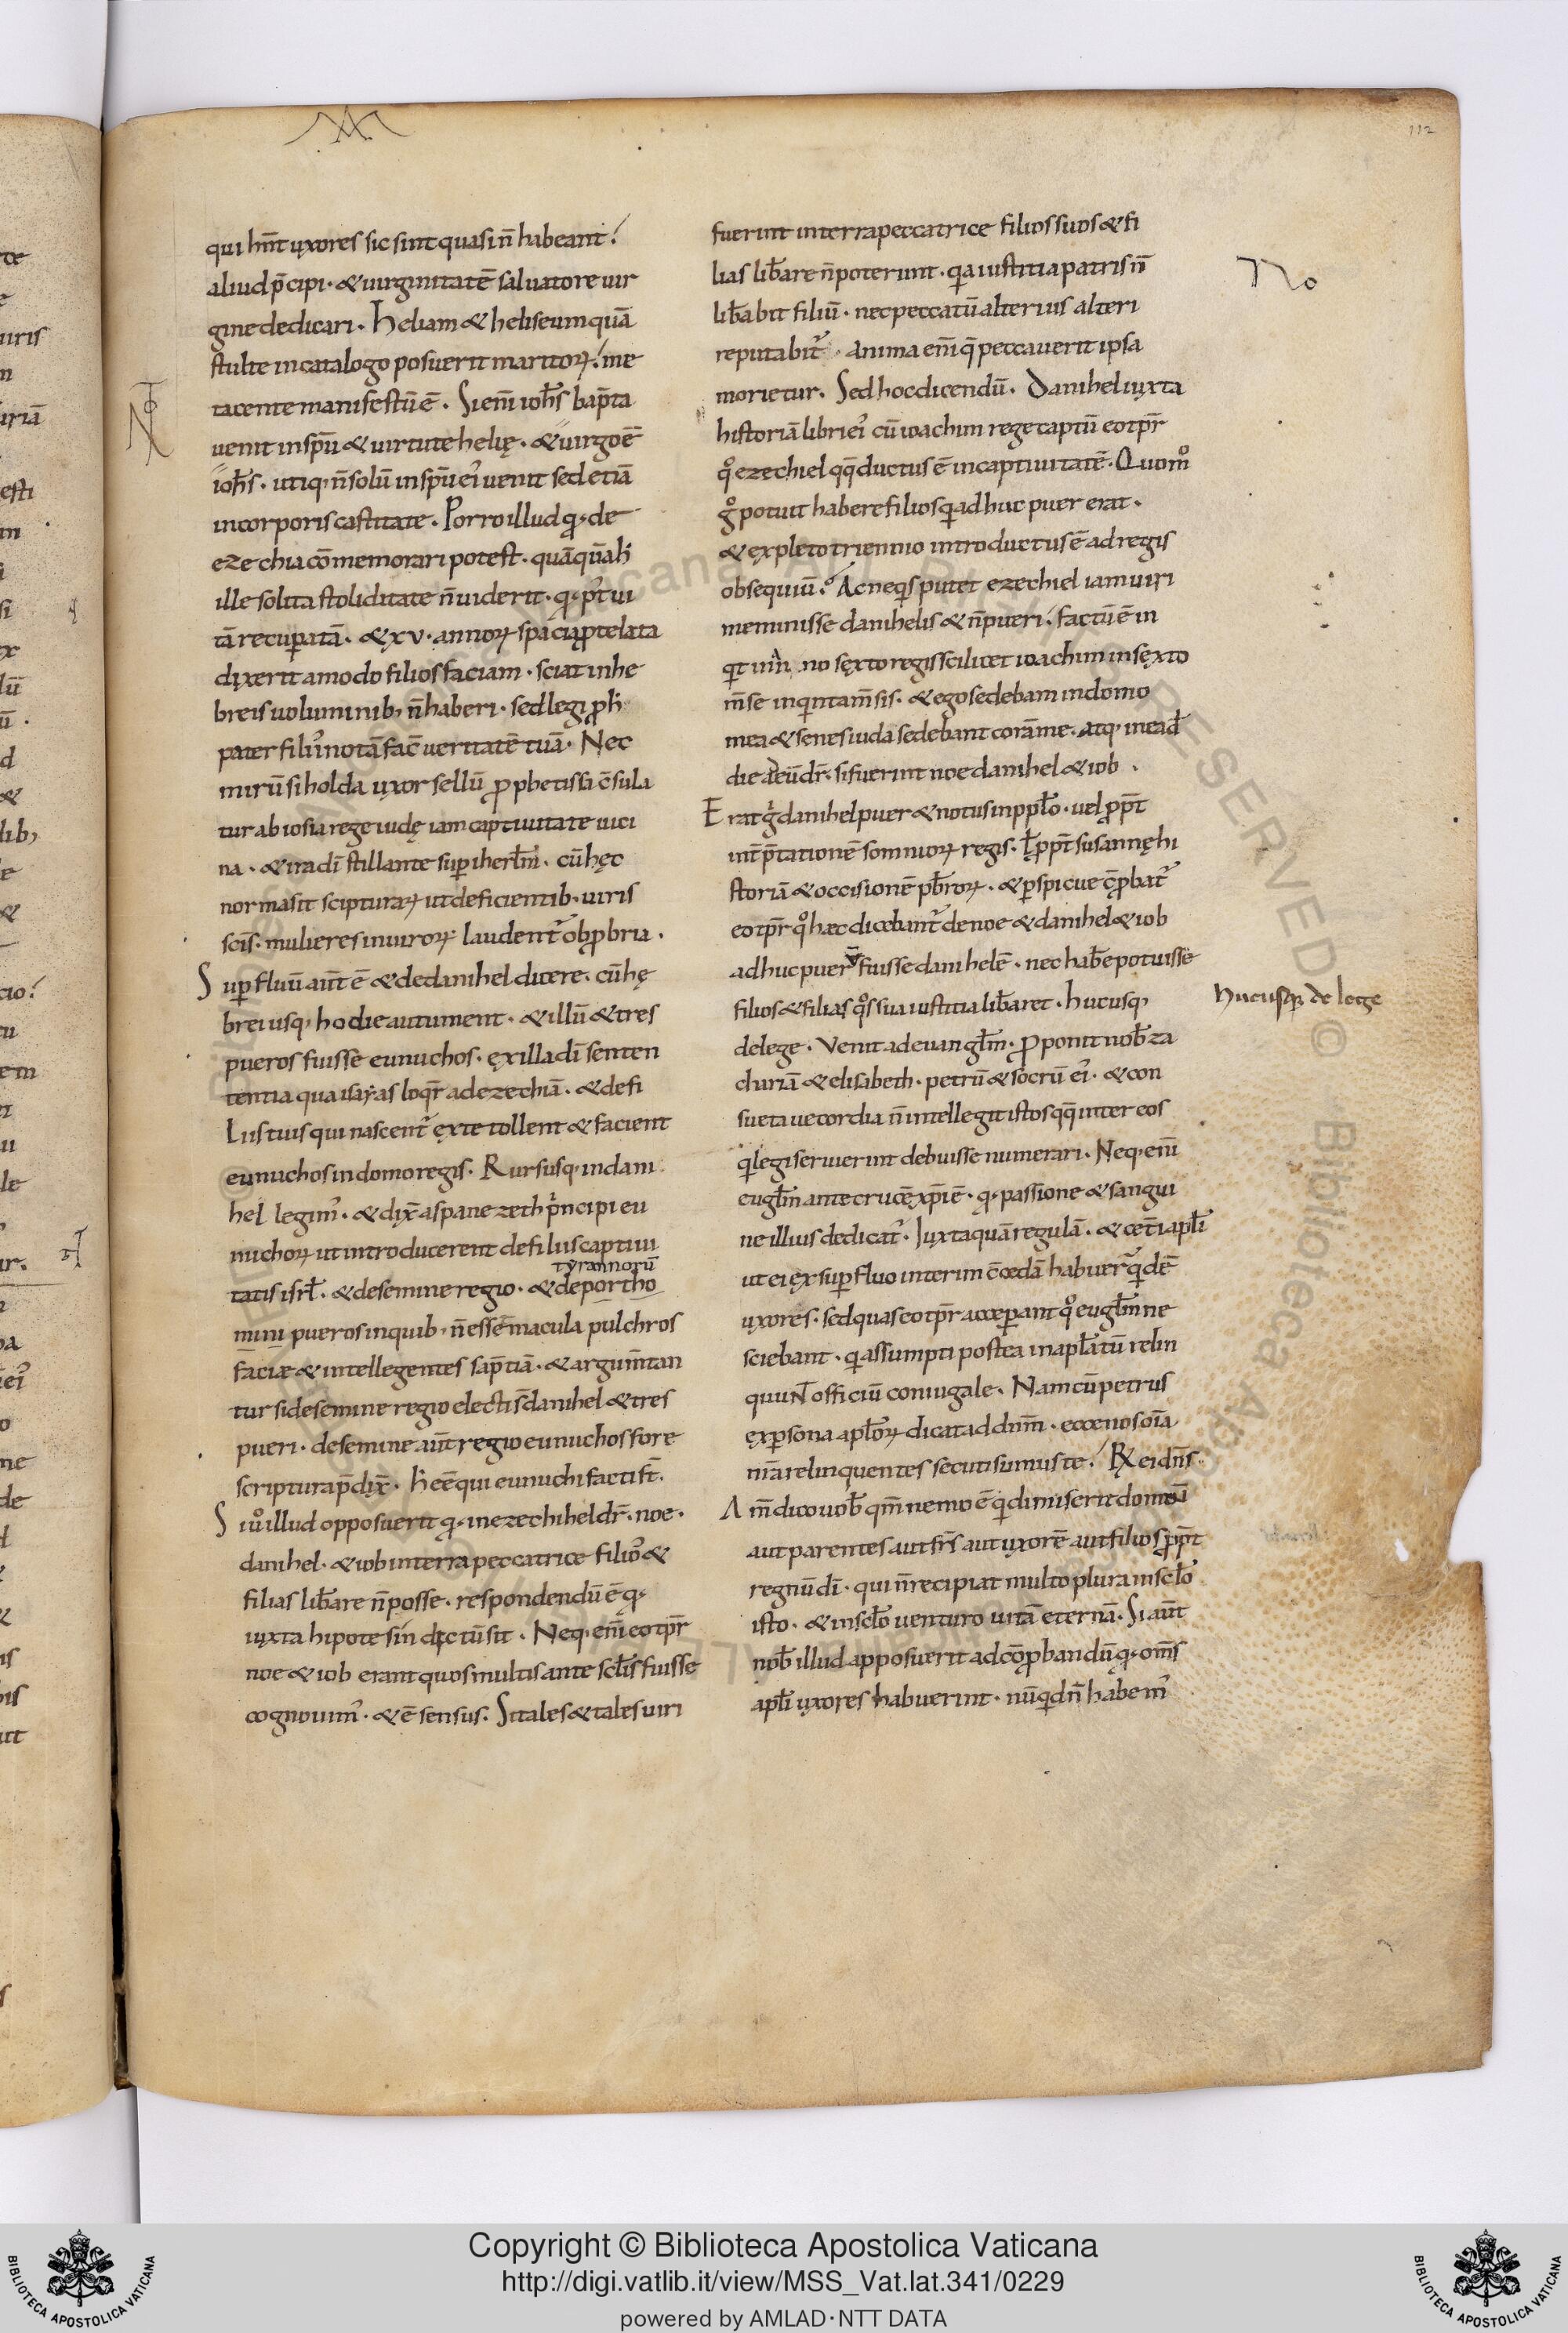 112
qui hn̅t uxores sic sint quasi n̅ habeant.
aliud p̅cipi. & uirginitate̅ saluatore uir
gine dedicari. heliam & heliseum qua̅
stulte in catalogo posuerit maritoꝝ. me
tacente manifestu̅ e̅. Si eni̅ ioh̅s bap̅ta
uenit in sp̅u & uirtute helię. & uirgo e̅
ioh̅s. utiq; n̅ solu̅ in sp̅u ei᾽ uenit sed etia̅
in corporis castitate. Porro illud q̵ de
ezechia co̅memorari potest. qua̅qua̅
ille solita stoliditate n̅ uiderit. q̵ p᷒t ui
ta̅ recuꝑata̅. & xv. annoꝝ spacia ꝓtelata
dixerit amodo filios faciam. sciat in he
breis uoluminib; n̅ haberi. sed legi ꝓ
pater filiis nota̅ faci& ueritate̅ tua̅. Nec
miru̅ si holda uxor sellu̅ ꝓphetissa c̅sula
tur ab iosia rege iudę iam captiuitate uici
na. & ira di̅ stillante suꝑ iherl̅m. cu̅ hęc
norma sit scipturaꝝ ut deficientib. uiris
sc̅is. mulieres in uiroꝝ laudent᷒ obꝓbria.
Suꝑfluu̅ aut̅ e̅ & de danihel dicere. cu̅ hę
brei usq; hodie autument. & illu̅ & tres
pueros fuisse eunuchos. ex illa di̅ senten
tentia qua isayas loq̅r ad ezechia̅. & de fi
liis tuis qui nascent᷒ ex te tollent & facient
eunuchos in domo regis. Rursusq; in dani
hel legim᾽. & dix̅ aspanezeth p᷒ncipi eu
nuchoꝝ ut introducerent de filiis captiui
tyrannoru̅
tatis isrl̅. & de semine regio. & de portho
mini pueros in quib; n̅ esse̅ macula pulchros
facie & intellegentes sap̅tia̅. & argum̅tan
tur si de semine regio electi s̅ danihel & tres
pueri. de semine aut̅ regio eunuchos fore
scriptura p̅dix̅. hi e̅e̅ qui eunuchi facti s̅t.
Si uº illud opposuerit q̵ in ezechihel dr̅. noe.
danihel. & iob in terra peccatrice filios &
filias lib̅are n̅ posse. respondendu̅ e̅ q̵
iuxta hipotesin dictu̅ sit. Neq; eni̅ eo tp̅r
noe & iob erant quos multis ante scl̅is fuisse
cognouim᾽. & e̅ sensus. Si tales & tales uiri
fuerint in terra peccatrice filios suos & fi
lias lib̅are n̅ poterunt. quia iustitia patris n̅
lib̅abit filiu̅. nec peccatu̅ alterius alteri
reputabit᷒. anima eni̅ q̅ peccauerit ipsa
morietur. Sed hoc dicendu̅. Danihel iuxta
historia̅ libri ei᾽ cu̅ ioachim rege captu̅ eo tp̅r
qº ezechiel qq̅ ductus e̅ in captiuitate̅. Quomº
gº potuit habere filios qui adhuc puer erat.
& expleto triennio introductus e̅ ad regis
obsequiu̅. Ac ne quis putet ezechiel iam uiri
meminisse danihelis & n̅ pueri. factu̅ e̅ in
quit in anno sexto regis scilicet ioachim in sexto
m̅se in quinta m̅sis. & ego sedebam in domo
mea & senes iuda sedebant cora̅ me. atq; in ead̅
die ad eu̅ dr̅. si fuerint noe danihel & iob.
Erat g᷒ danihel puer & notus in ppl̅o. uel ꝓp̅t
int̅p̅tatione̅ somnioꝝ regis. l̅ ꝓp̅t susannę hi
storia̅ & occisione̅ pb̅roꝝ. & ꝑspicue c̅ꝓbat᷒
eo tp̅r qº hæc dicebant᷒ de noe & danihel & iob
adhuc pueru̅ fuisse danihele̅. nec hab̅e potuisse
filios & filias qºs sua iustitia lib̅aret. hucusq;
de lege. Venit ad euangl̅m. ꝓponit nob̅ za
charia̅ & elisabeth. petru̅ & socru̅ ei᾽. & con
sueta uecordia n̅ intellegit istos qq̅ inter eos
qui legi seruierint debuisse numerari. Neq; eni̅
eugl̅m ante cruce̅ xp̅i e̅. q̵ passione & sangui
ne illius dedicat᷒. Iuxta qua̅ regula̅. & cet̅i apl̅i
ut ei ex suꝑfluo interim c̅ceda̅ habuer̅ quide̅
uxores. sed quas eo tp̅r acceꝑant qº eugl̅m ne
sciebant. qui assumpti postea in apl̅atu̅ relin
quunt officiu̅ coniugale. Nam cu̅ petrus
ex ꝑsona apl̅oꝝ dicat ad dn̅m. ecce nos oi̅a
nr̅a relinquentes secuti sumus te. R̸ ei dn̅s.
Am̅ dico uob̅ qm̅ nemo e̅ qui dimiserit domu̅
aut parentes aut fr̅s aut uxore̅ aut filios ꝓp̅t
regnu̅ di̅. qui n̅ recipiat multo plura in scl̅o
isto. & in scl̅o venturo uita̅ eterna̅. Si aut̅
nob̅ illud apposuerit ad co̅ꝓbandu̅ q̵ om̅s
apl̅i uxores habuerint. nu̅quid n̅ habem᾽
No
hucusq; de lege
Copyright © Biblioteca Apostolica Vaticana
http://digi.vatlib.it/view/MSS_Vat.lat.341/0229
powered by AMLAD·NTT DATA
BIBLIOTECA APOSTOLICA VATICANA
BIBLIOTECA APOSTOLICA VATICANA